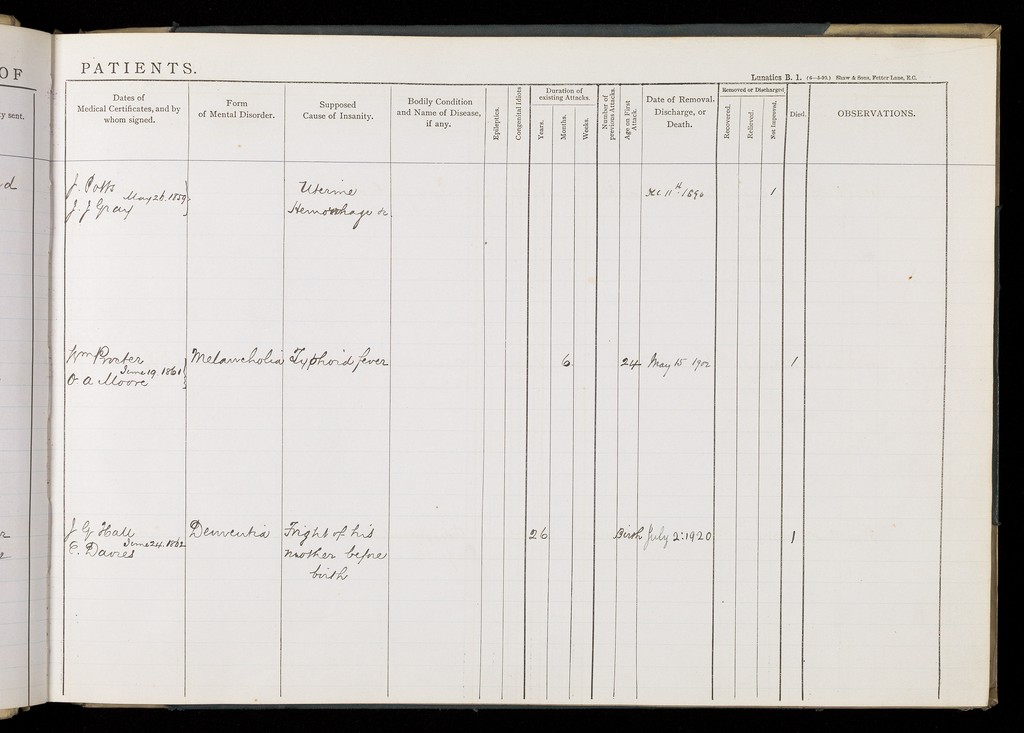 OF
PATIENTS.
Lunatics B. 1. (6—5-99.) Shaw & Sons, Fetter Lane, E.C.
y sent.
Dates of
Medical Certificates, and by
whom signed.
Form
of Mental Disorder.
Supposed
Cause of Insanity.
Bodily Condition
and Name of Disease,
if any.
Epileptics.
Congenital Idiots
Duration of
existing Attacks.
Years.
Months.
Weeks.
Number of
previous Attacks.
Age on First
Attack.
Date of Removal,
Discharge, or
Death.
Removed or Discharged
Recovered.
Relieved.
Not Improved.
Died.
OBSERVATIONS.
d
J. Potts
May 26. 1859
J. J Gray
Uterine
Hemorrhage &c.
Dec 11th 1890
1
Wm Procter
June 19. 1861
O A Moore
Melancholia
Typhoid fever
6
24
May 15 1902
1
J G Hall
June 24. 1862
C. Davies
Dementia
Fright of his
mother before
birth
26
Birth
July 2: 1920
1